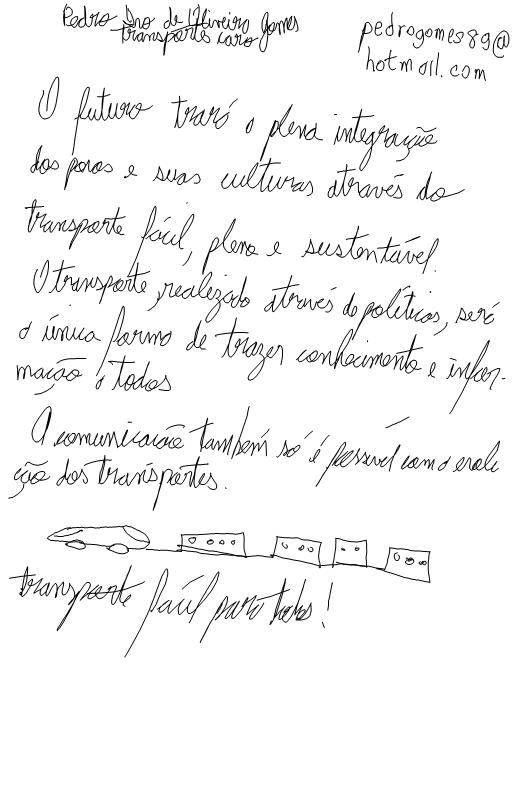 Pedro Ino de Oliveira Gomes
transportes caro
pedrogomes89@
hotmail.com
O futuro trará a plena integração
dos povos e suas culturas através do
transporte fácil, pleno e sustentável.
O transporte, realizado através de políticas, será
a única forma de trazer conhecimento e infor-
mação a todos
A comunicação também só é possível com a evolu
ção dos transportes.
transporte fácil para todos!